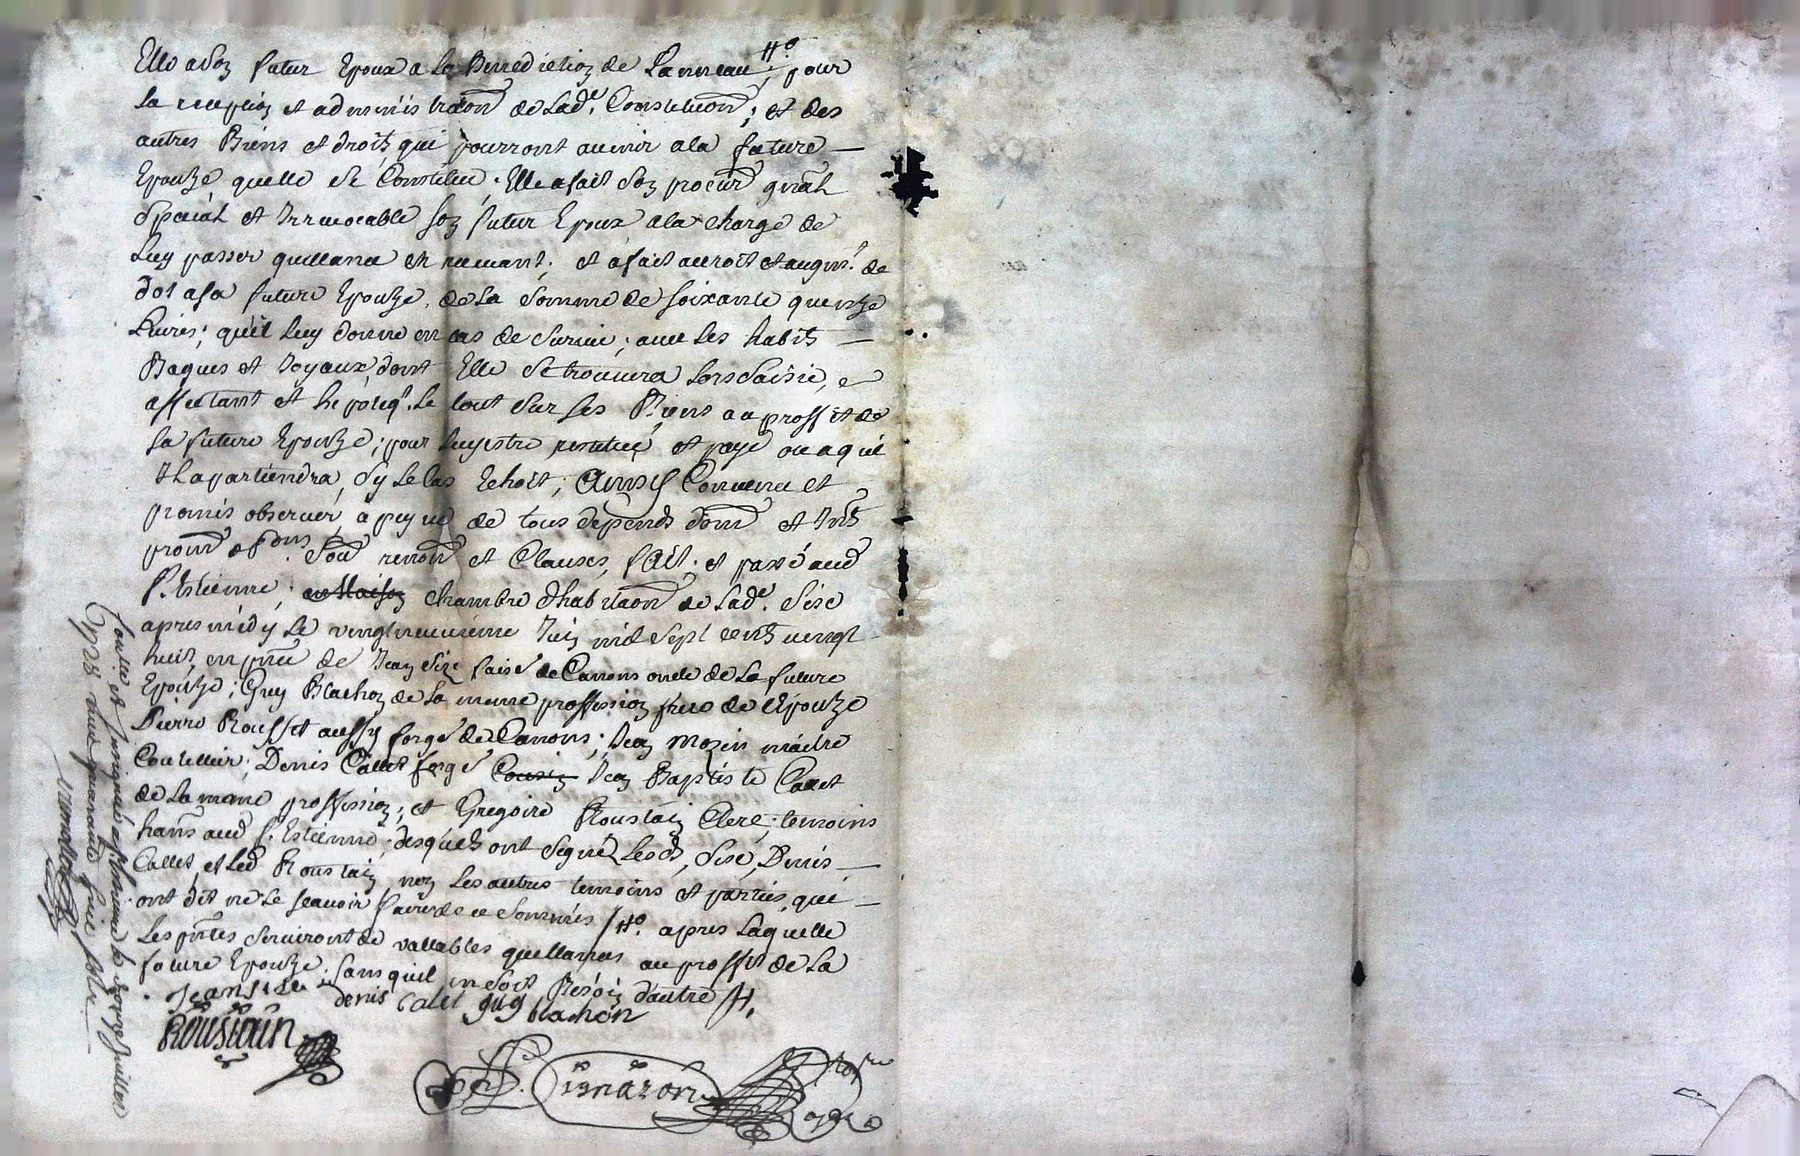 Elle a son futur Epoux a La Benediction de Lanneau #o pour
la reception et administraon de Lade. Constituon; et des
autres Biens et droits qui pourront auenir ala future —
Epouze quelle se Constitue. Elle a fait son procur gnãl
Speciál et Irreuocable son futur Epoux ala charge de
Luy passer quittance en receuant; et a fait accroit et augmt. de
dot a sa future Epouze, de la Somme de soixante quinze
Liures; qu'il luy donne en cas de Suruie; auec les habits —
Bagues et Joyaux dont Elle se trouuera Lors Saisie, e
affectant et hepoteqt. le tout sur ses Biens au proffit de
sa future Epouze; pour Luy estre restitué et payé ou a qui
Il apartiendra, Sy le Cas Echoit; Ainsy Conuenu et
promis obseruer a peyne de tous depends dom et Int
prom obons Soum renon et Clauses, fait et passé aud
St. Estienne; en Maison chambre d'habitaon de Lade. Size
apres midy le vingtneufuieme Juin mil Sept cents vingt
huit en pnce de Jean Size faisr de Canons oncle de La future
Epouze; Guy Blachon de la meme proffession frere de l'Epouze
Pierre Rousset aussy forgr de Canons; Jean Mozin maitre
Coutellier; Denis Callet forgr Cousin Jean Baptiste Callet
de La meme proffession; et Gregoire Roustain Clerc; temoins
hans aud St. Estienne; desquels ont Signé Lesd, Size, Denis —
Callet, et Led Roustain non Les autres temoins et parties, qui —
ont dit ne Le scauoir faire de ce Sommés /#o. apres Laquelle
Les pntes Seruiront de vallables quittances au proffit de La
future Epouze, Sans quil en soit Besoin d'autre #.
Jean Size denis Calet guy blachon
Roustain
Controllé et Insinué a St Estienne le onze Juillet
1728